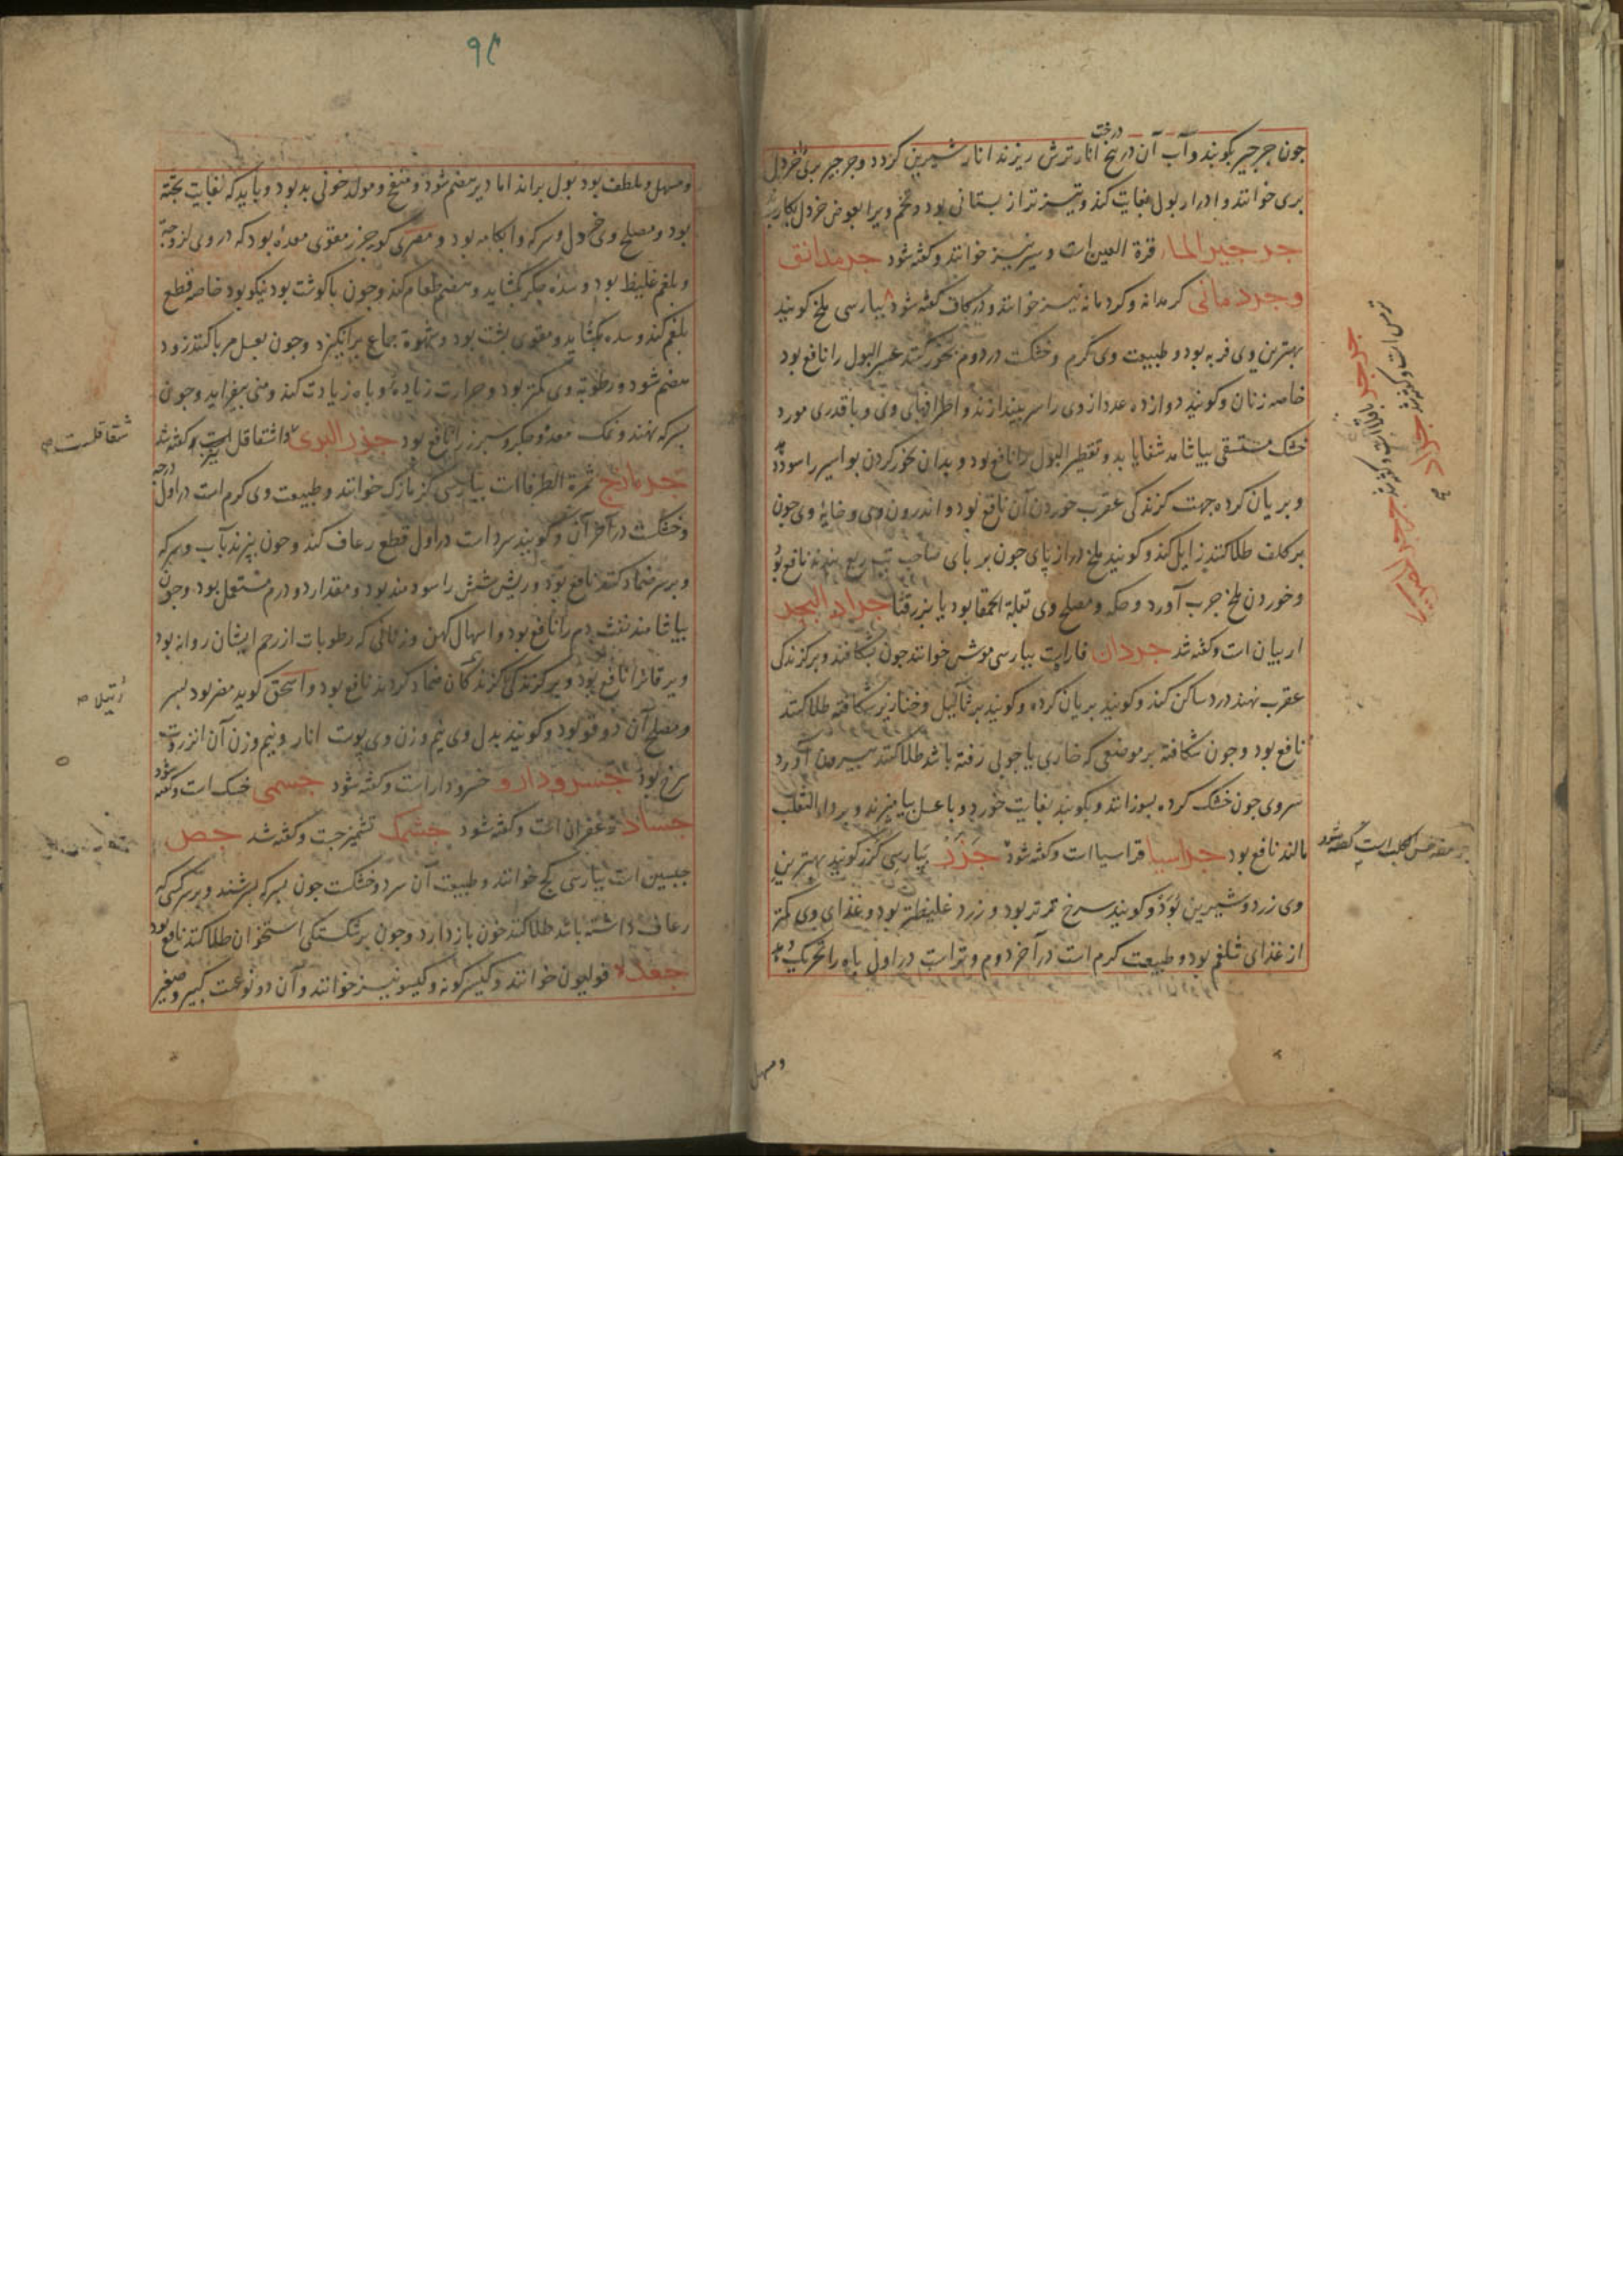 درخت
جون جرجیر بکوبند و آب آن در بیخ انار ترش ریزند انار شیرین کردد و جرجیر بری را خردل
بری خوانند و ادرار بول بغایت کند و تیزتر از بستانی بود و تخم ویرا بعوض خردل بکار برند
جرجیر الما قرة العین است و سیر نیز خوانند و کفته شود جرمدانق
و جردمانی کرمدانه و کردمانه نیز خوانند و در کاف کفته شود بپارسی ملخ کویند
بهترین وی فربه بود و طبیعت وی کرم و خشکست در دوم بخور کنند عسر البول را نافع بود
خاصه زنان و کویند دوازده عدد از وی را سر بیندازند و اطرافهای وی و با قدری مورد
خشک مستسقی بیاشامد شفا یابد و تقطیر البول را نافع بود و بدان بخور کردن بواسیر را سود دهد
و بریان کرده جهت کزندکی عقرب خوردن آن نافع بود و اندرون وی و خایهٔ وی جون
بر کلف طلا کنند زایل کند و کویند ملخ دراز پای جون بر پای صاحب تب ربع بندند نافع بود
و خوردن ملخ جرب آورد و حکه و مصلح وی بقلة الحمقا بود یا بزرقثا جراد البحر
اربیان است و کفته شد جردان فارات بپارسی موش خوانند جون بشکافند و بر کزندکی
عقرب نهند درد ساکن کند و کویند بریان کرده و کویند بر ثآلیل و خنازیر شکافته طلا کنند
نافع بود و جون شکافته بر موضعی که خاری یا جوبی رفته باشد طلا کنند بیرون آورد
سر وی جون خشک کرده بسوزانند و بکوبند بغایت خورد و با عسل بیامیزند و بر داء الثعلب
مالند نافع بود جراسیا قراسیا است و کفته شود جزر بپارسی کزر کویند بهترین
وی زرد و شیرین بود و کویند سرخ تمرتر بود و زرد غلیظتر بود و غذای وی کمتر
از غذای شلغم بود و طبیعت کرم است در آخر دوم و تر است در اول باه را تحریک دهد
ترمس است و کفته شد جراد
جرجر باقلا است و کفته شد
است کفته شود
و مسهل
۹۴
و مسهل و ملطف بود بول براند اما دیر هضم شود و منفخ و مولد خونی بد بود و باید که بغایت پخته
بود و مصلح وی خردل و سرکه و آبکامه بود و مصری کوید جزر مقوی معده بود که در وی لزوجة
و بلغم غلیظ بود و سدهٔ جکر بکشاید و هضم طعام کند و جون با کوشت بود نیکو بود خاصه قطع
بلغم کند و سده بکشاید و مقوی پشت بود و شهوة جماع برانکیزد و جون بعسل مربا کنند زود
هضم شود و رطوبة وی کمتر بود و حرارت زیاده و باه زیادت کند و منی بیفزاید و جون
بسرکه نهند و نمک معده و جکر و سپرز را نافع بود جزر البری اشقاقل است و کفته شد
جزمازج ثمرة الطرفا است بپارسی کزمازک خوانند و طبیعت وی کرم است در اول درجه
و خشکست در آخر آن و کویند سرد است در اول قطع رعاف کند و جون بپزند بآب و سرکه
و بر سپرز ضماد کنند نافع بود و ریش شش را سودمند بود و مقدار دو درم مستعمل بود و جون
بیاشامند نفث دم را نافع بود و اسهال کهن و زنانی که رطوبات از رحم ایشان روانه بود
و یرقانرا نافع بود و بر کزندکی کزندکان ضماد کردند نافع بود و اسحق کوید مضر بود بسر
و مصلح آن دوقو بود و کویند بدل وی نیم وزن وی پوست انار و نیم وزن آن انزروت
سرخ بود جسرودارو خسرودارست و کفته شود جسمی خسک است و کفته شود
جساد زعفران است و کفته شود جشمک تشمیزجت و کفته شد جص
جبسین است بپارسی کچ خوانند و طبیعت آن سرد و خشکست جون بسرکه بسرشند و بر سر کسی که
رعاف داشته باشد طلا کنند خون باز دارد و جون بر شکستکی استخوان طلا کنند نافع بود
جعده فولیون خوانند و کیسرکونه و کیسو نیز خوانند و آن دو نوعست کبیر و صغیر
شقاقلست
رتیلا